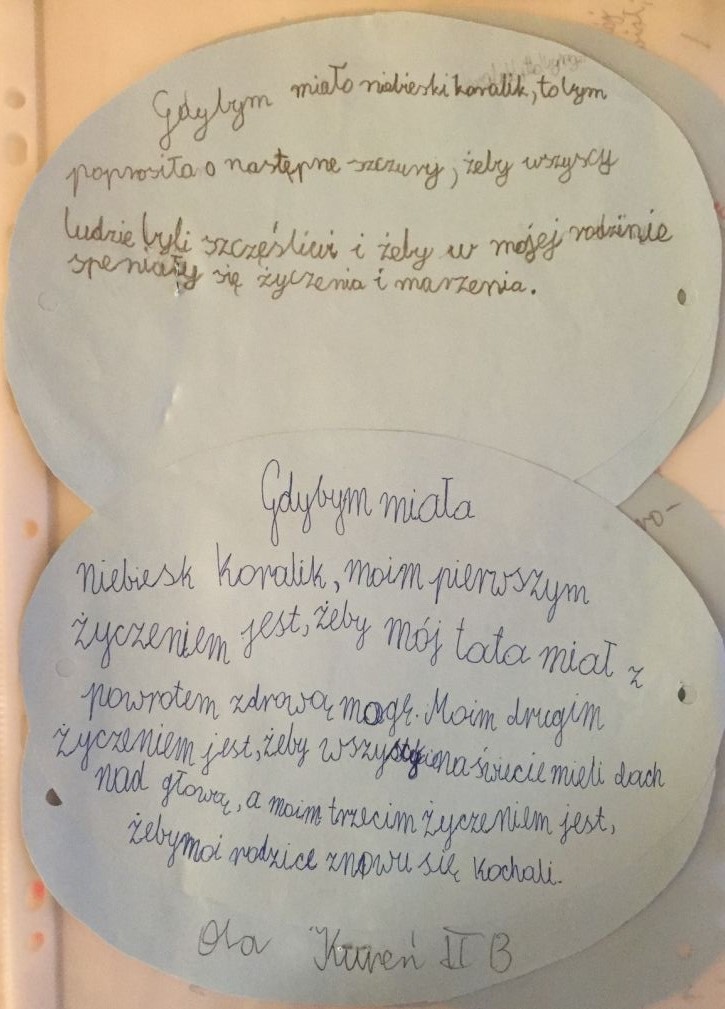 Gdybym miało niebieski koralik, to bym
poprosiła o następne szczury, żeby wszyscy
ludzie byli szczęśliwi i żeby w mojej rodzinie
speniały się życzenia i marzenia.
Gdybym miała
niebiesk koralik, moim pierwszym
życzeniem jest, żeby mój tata miał z
powrotem zdrową nogę. Moim drugim
życzeniem jest, żeby na świecie mieli dach
nad głową, a moim trzecim życzeniem jest,
żeby moi rodzice znowu się kochali.
Ola II B